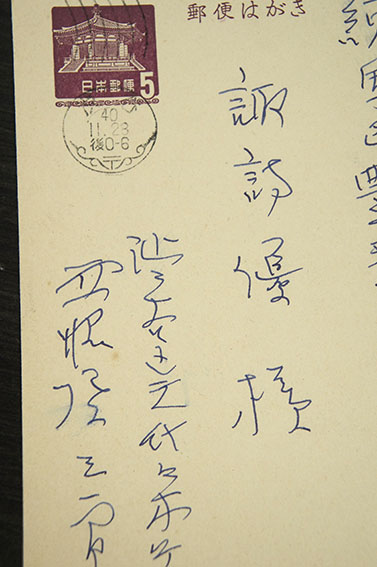 郵便はがき
日本郵便 5
40
11.23
後0-6
練馬区豊玉
諏訪優様
渋谷区元代々木
西脇順三郎